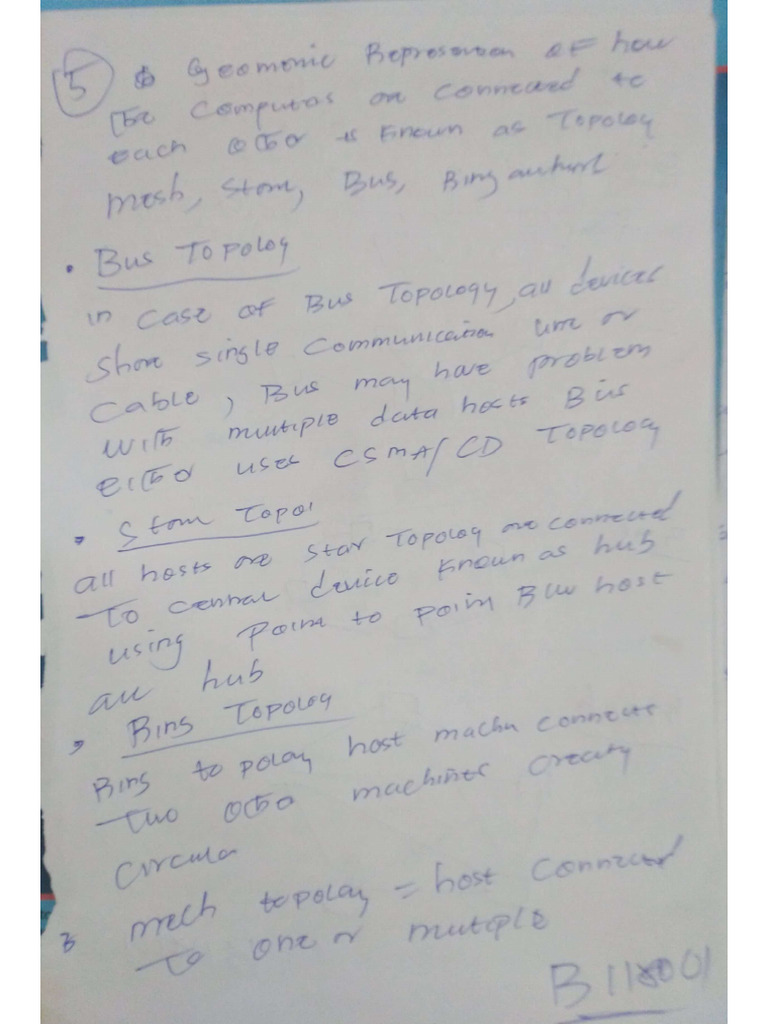 5 Geomonic Represention of how
the computers are connected to
each other is known as Topology
mesh, Star, Bus, Ring
• Bus Topolog
in case of Bus Topology, all devices
share single communication line or
cable, Bus may have problem
with multiple data hosts Bus
either uses CSMA/CD Topology
Star Topol
all hosts are star Topolog are connected
To central device known as hub
using point to point B/w host
an hub
Ring Topolog
Ring topolay host machn connects
Two other machines creaty
Circular
mech topolay = host connected
To one or mutiple